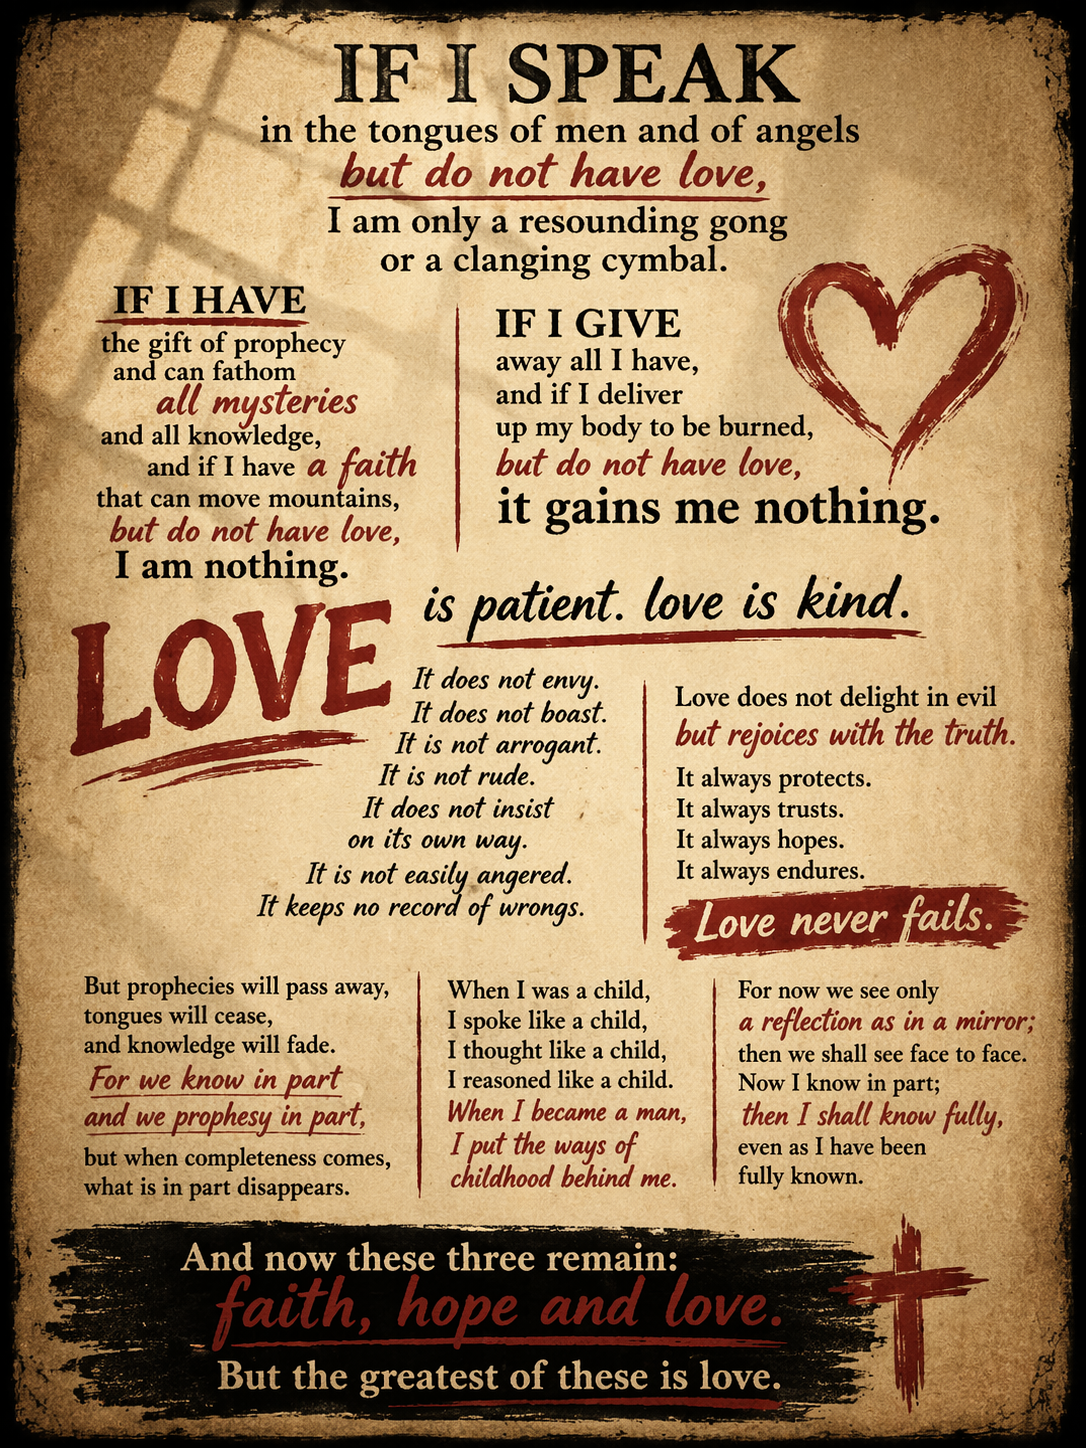 IF I SPEAK
in the tongues of men and of angels
but do not have love,
I am only a resounding gong
or a clanging cymbal.
IF I HAVE
the gift of prophecy
and can fathom
all mysteries
and all knowledge,
and if I have a faith
that can move mountains,
but do not have love,
I am nothing.
IF I GIVE
away all I have,
and if I deliver
up my body to be burned,
but do not have love,
it gains me nothing.
LOVE is patient. love is kind.
It does not envy.
It does not boast.
It is not arrogant.
It is not rude.
It does not insist
on its own way.
It is not easily angered.
It keeps no record of wrongs.
Love does not delight in evil
but rejoices with the truth.
It always protects.
It always trusts.
It always hopes.
It always endures.
Love never fails.
But prophecies will pass away,
tongues will cease,
and knowledge will fade.
For we know in part
and we prophesy in part,
but when completeness comes,
what is in part disappears.
When I was a child,
I spoke like a child,
I thought like a child,
I reasoned like a child.
When I became a man,
I put the ways of
childhood behind me.
For now we see only
a reflection as in a mirror;
then we shall see face to face.
Now I know in part;
then I shall know fully,
even as I have been
fully known.
And now these three remain:
faith, hope and love.
But the greatest of these is love.